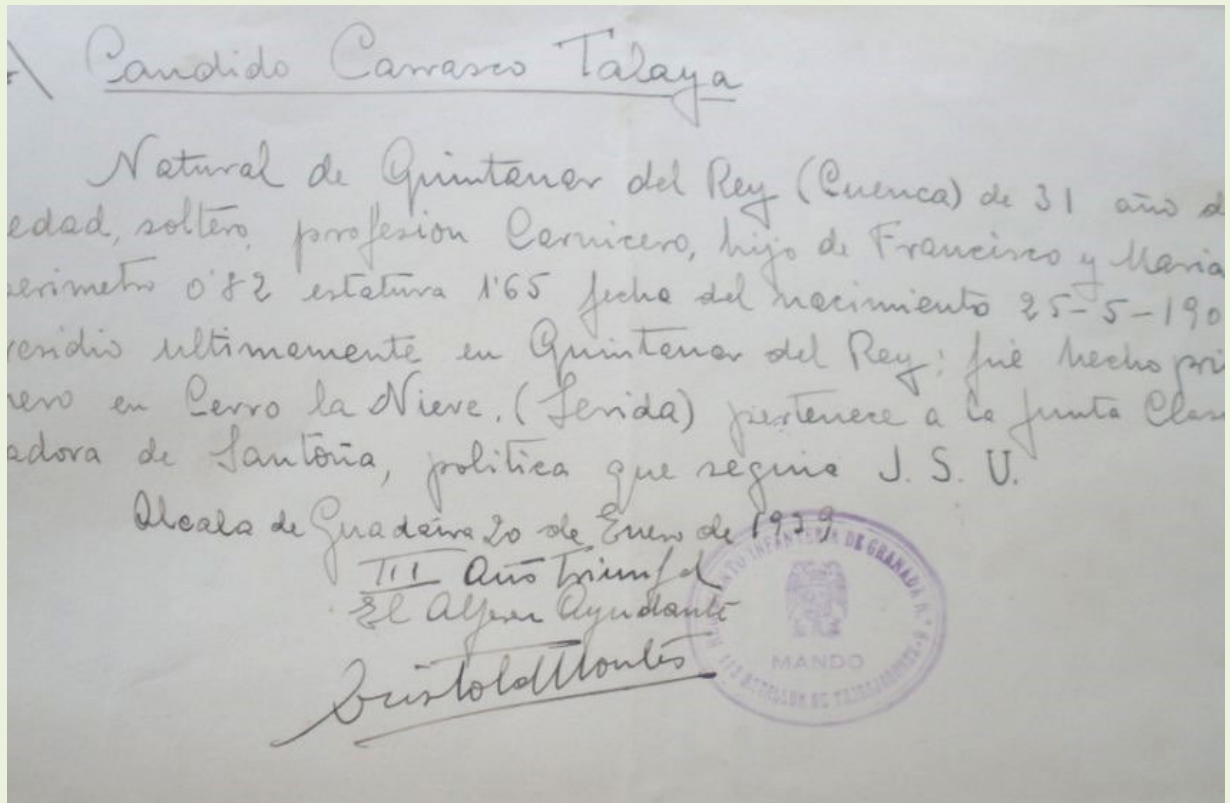 Candido Carrasco Talaya
Natural de Quintanar del Rey (Cuenca) de 31 año d
edad, soltero, profesion Carnicero, hijo de Francisco y Maria
erimetro 0'82 estatura 1'65 fecha del nacimiento 25-5-190
residio ultimamente en Quintanar del Rey: fué hecho pri
nero en Cerro la Nieve. (Lerida) pertenece a la Junta Clas
adora de Santoña, politica que seguia J. S. U.
Alcala de Guadaira 20 de Enero de 1939
III Año Triunfal
El Alferez Ayudante
INFANTERIA DE GRANADA N.º 6
MANDO
BATALLON DE TRABAJADORES